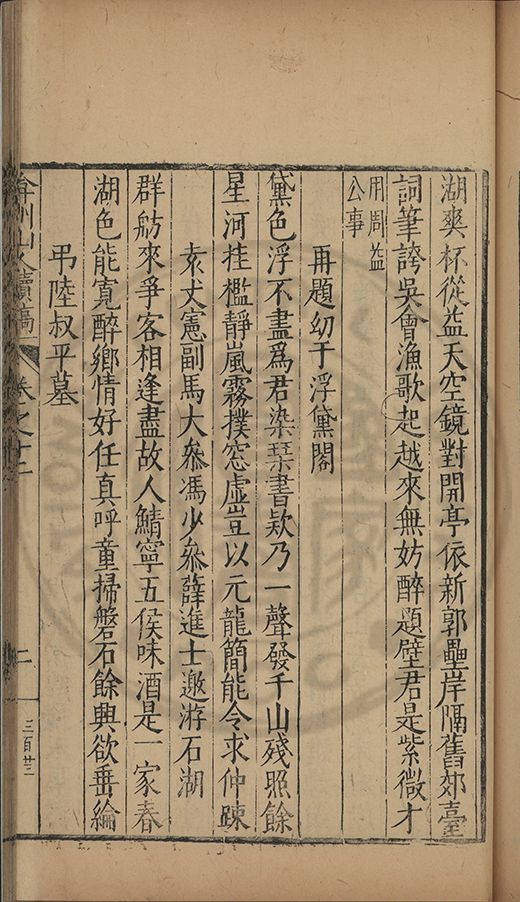 湖爽杯從益天空鏡對開亭依新郭壘岸隔舊郊臺
詞筆誇吳會漁歌起越來無妨醉題壁君是紫微才
用周益
公事
再題幼于浮黛閣
黛色浮不盡爲君染琹書欵乃一聲發千山殘照餘
星河挂檻靜嵐霧撲窓虛豈以元龍簡能令求仲踈
袁大憲副馬大叅馮少叅薛進士邀游石湖
群舫來爭客相逢盡故人鯖寧五侯味酒是一家春
湖色能寛醉鄉情好任真呼童掃磐石餘興欲垂綸
弔陸叔平墓
弇州山人續稿 卷之十二
二